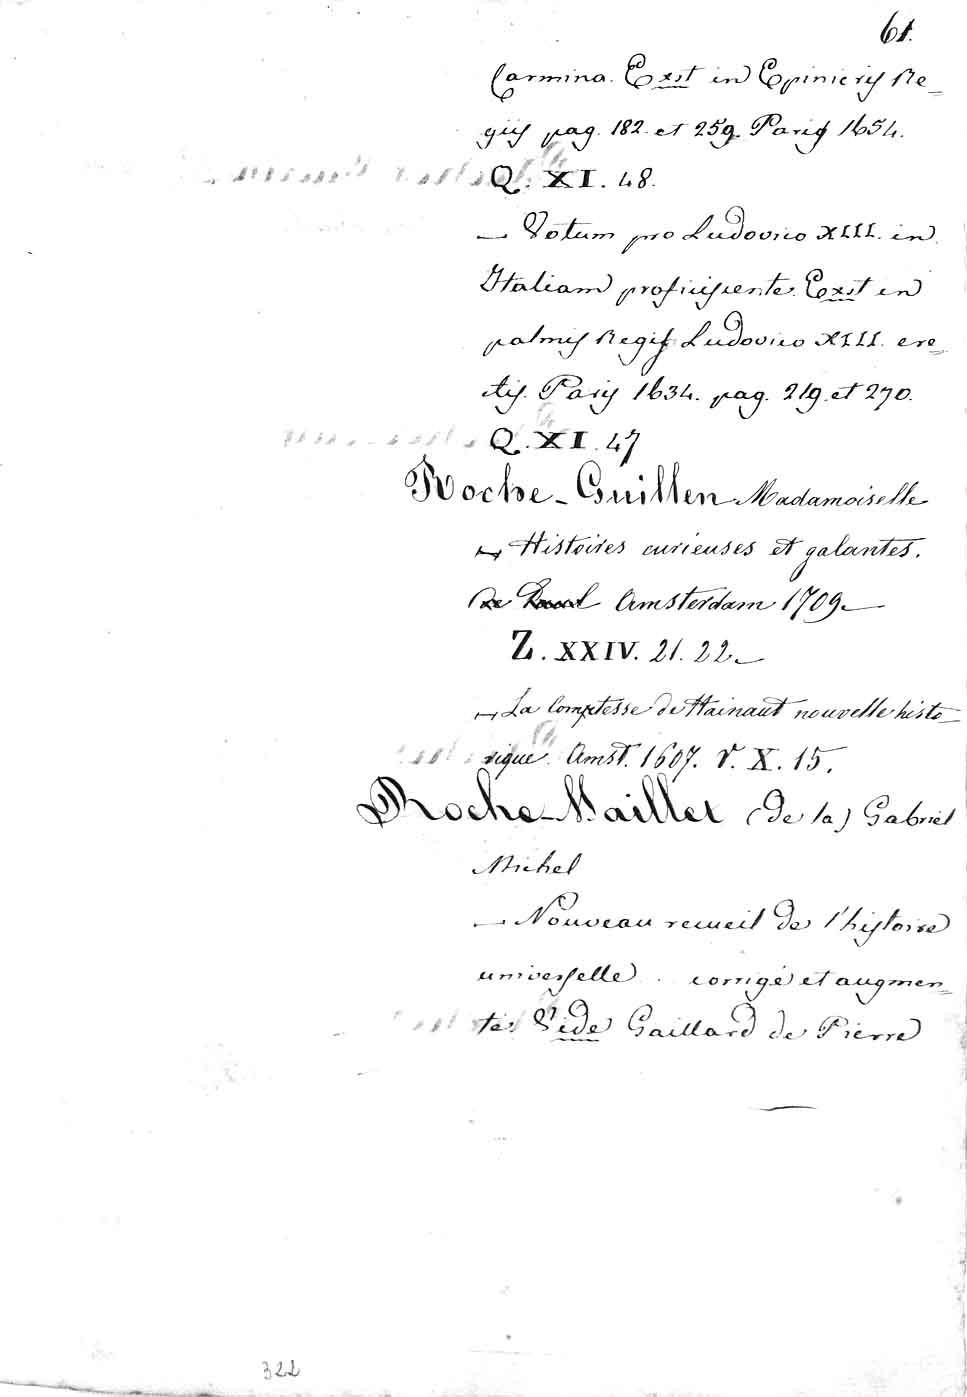 61.
Carmina. Exst in Epinicijs Re=
gijs pag. 182. et 259. Parijs 1654.
Q. XI. 48.
— Votum pro Ludovico XIII. in
Italiam proficisiente. Exst in
palmis Regis Ludovico XIII. ere=
ctis. Parijs 1634. pag. 219. et 270.
Q. XI. 47
Roche-Guillen Madamoiselle
— Histoires curieuses et galantes.
Amsterdam 1709.—
Z. XXIV. 21. 22.—
— La Comptesse de Hainaut nouvelle histo-
rique. Amst. 1607. V. X. 15.
Roche-Maillet (de la) Gabriel
Michel
— Nouveau recueil de l'histoire
universelle. corrigé et augmen=
té. Vide Gaillard de Pierre
322